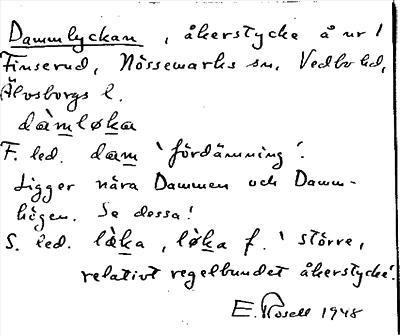 Dammlyckan, åkerstycke å nr 1
Finserud, Nössemarks sn, Vedbo hd,
Älvsborgs l.
dàmløka
F. led. dam 'fördämning'.
Ligger nära Dammen och Damm-
högen. Se dessa!
S. led. lø̀ka, løka f. 'större,
relativt regelbundet åkerstycke'.
E. Rosell 1948